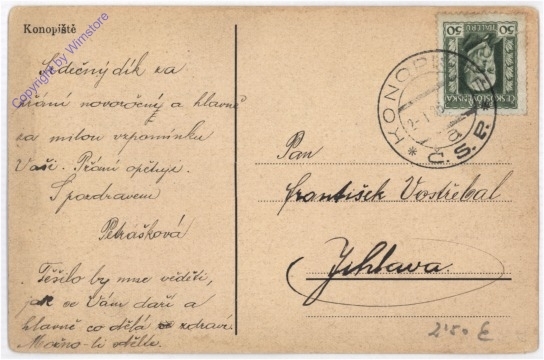 Konopiště
Srdečný dík za
přání novoročný a hlavně
za milou vzpomínku
Vaši. Přání opětuje.
S pozdravem
Petrášková
Těšilo by mne věděti,
jak se Vám daří a
hlavně co dělá zdraví.
Možno-li sdělte.
Pan
František Vostřebal
Jihlava.
50 HALÉŘŮ 50
ČESKOSLOVENSKA
KONOPIŠTĚ
* Č.S.P. *
Copyright by Wimstore
2·50 €